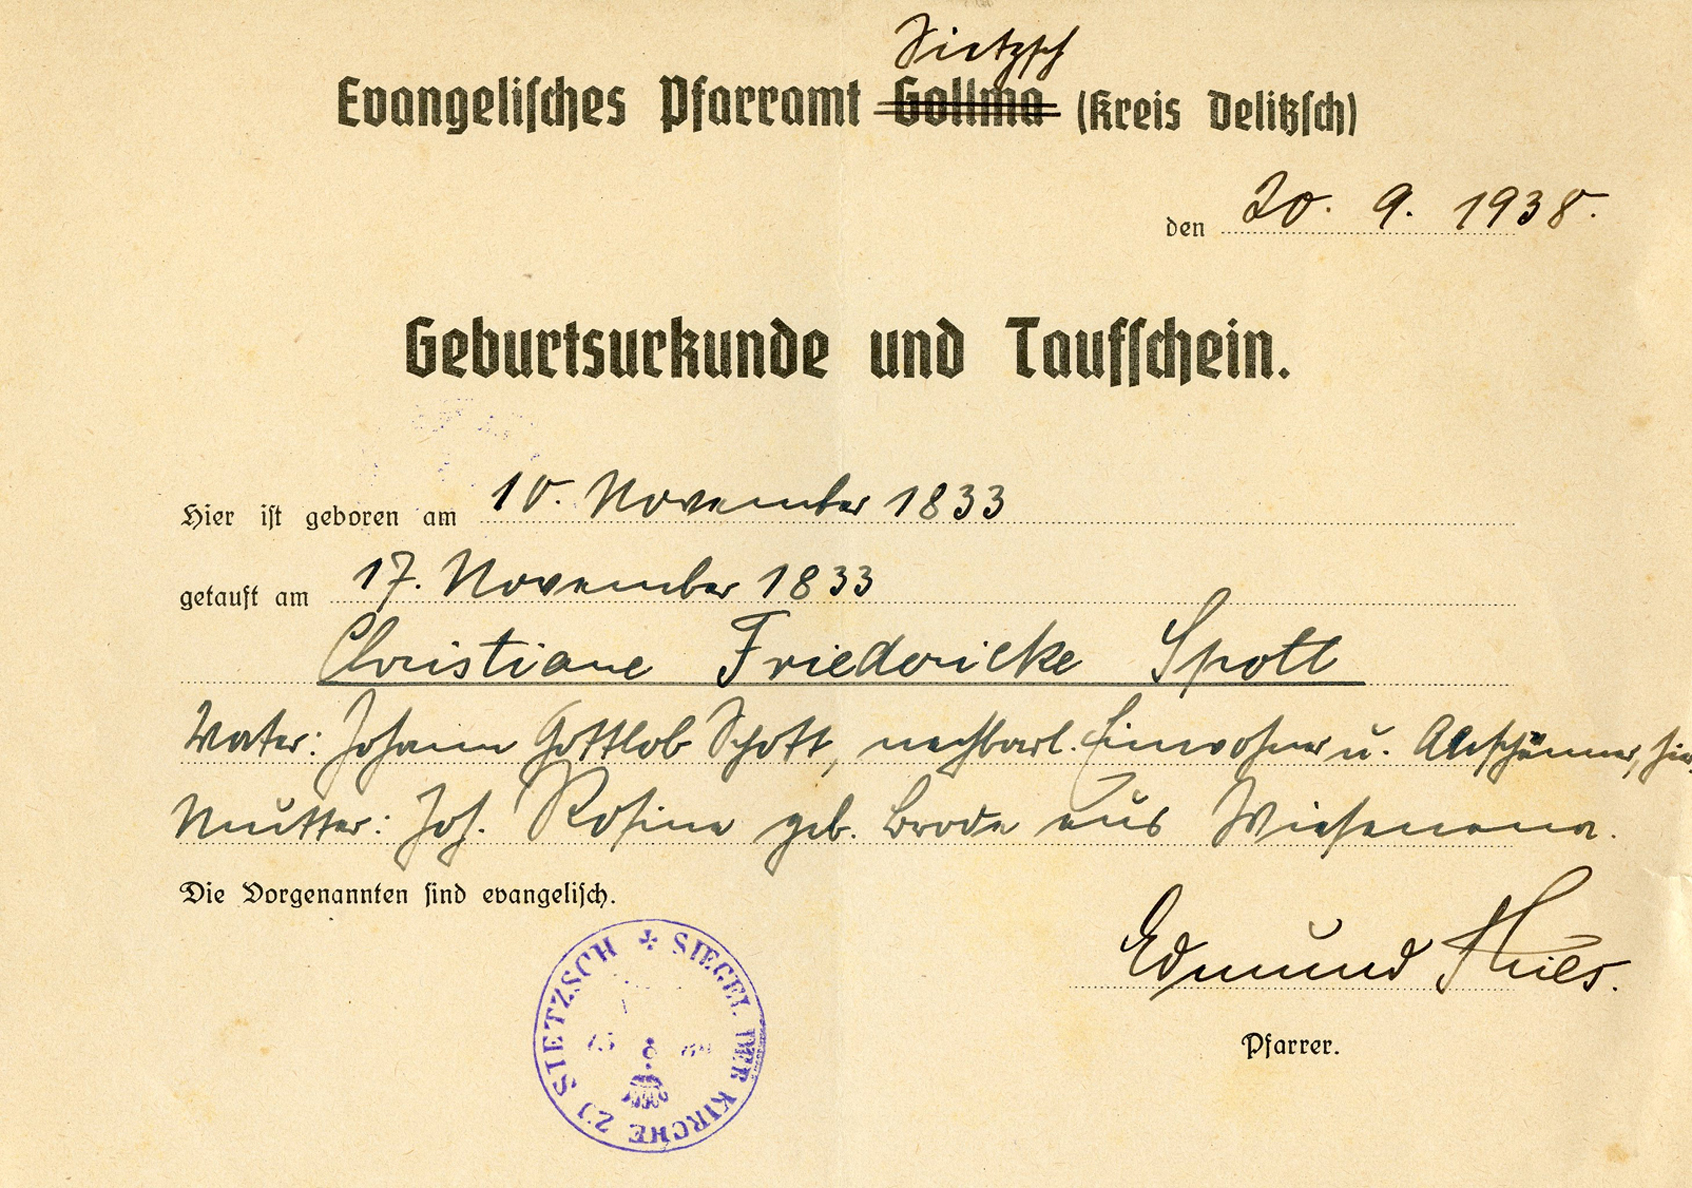 Sietzsch
Evangelisches Pfarramt Gollma (Kreis Delitzsch)
den 20. 9. 1938.
Geburtsurkunde und Taufschein.
Hier ist geboren am 10. November 1833
getauft am 17. November 1833
Christiane Friedericke Spott
Vater: Johann Gottlob Spott, nachbarl. Einwohner u. hier.
Mutter: Joh. Rosine geb. Brode aus Wiesenena.
Die Vorgenannten sind evangelisch.
Edmund
Pfarrer.
SIEGEL DER KIRCHE ZU SIETZSCH